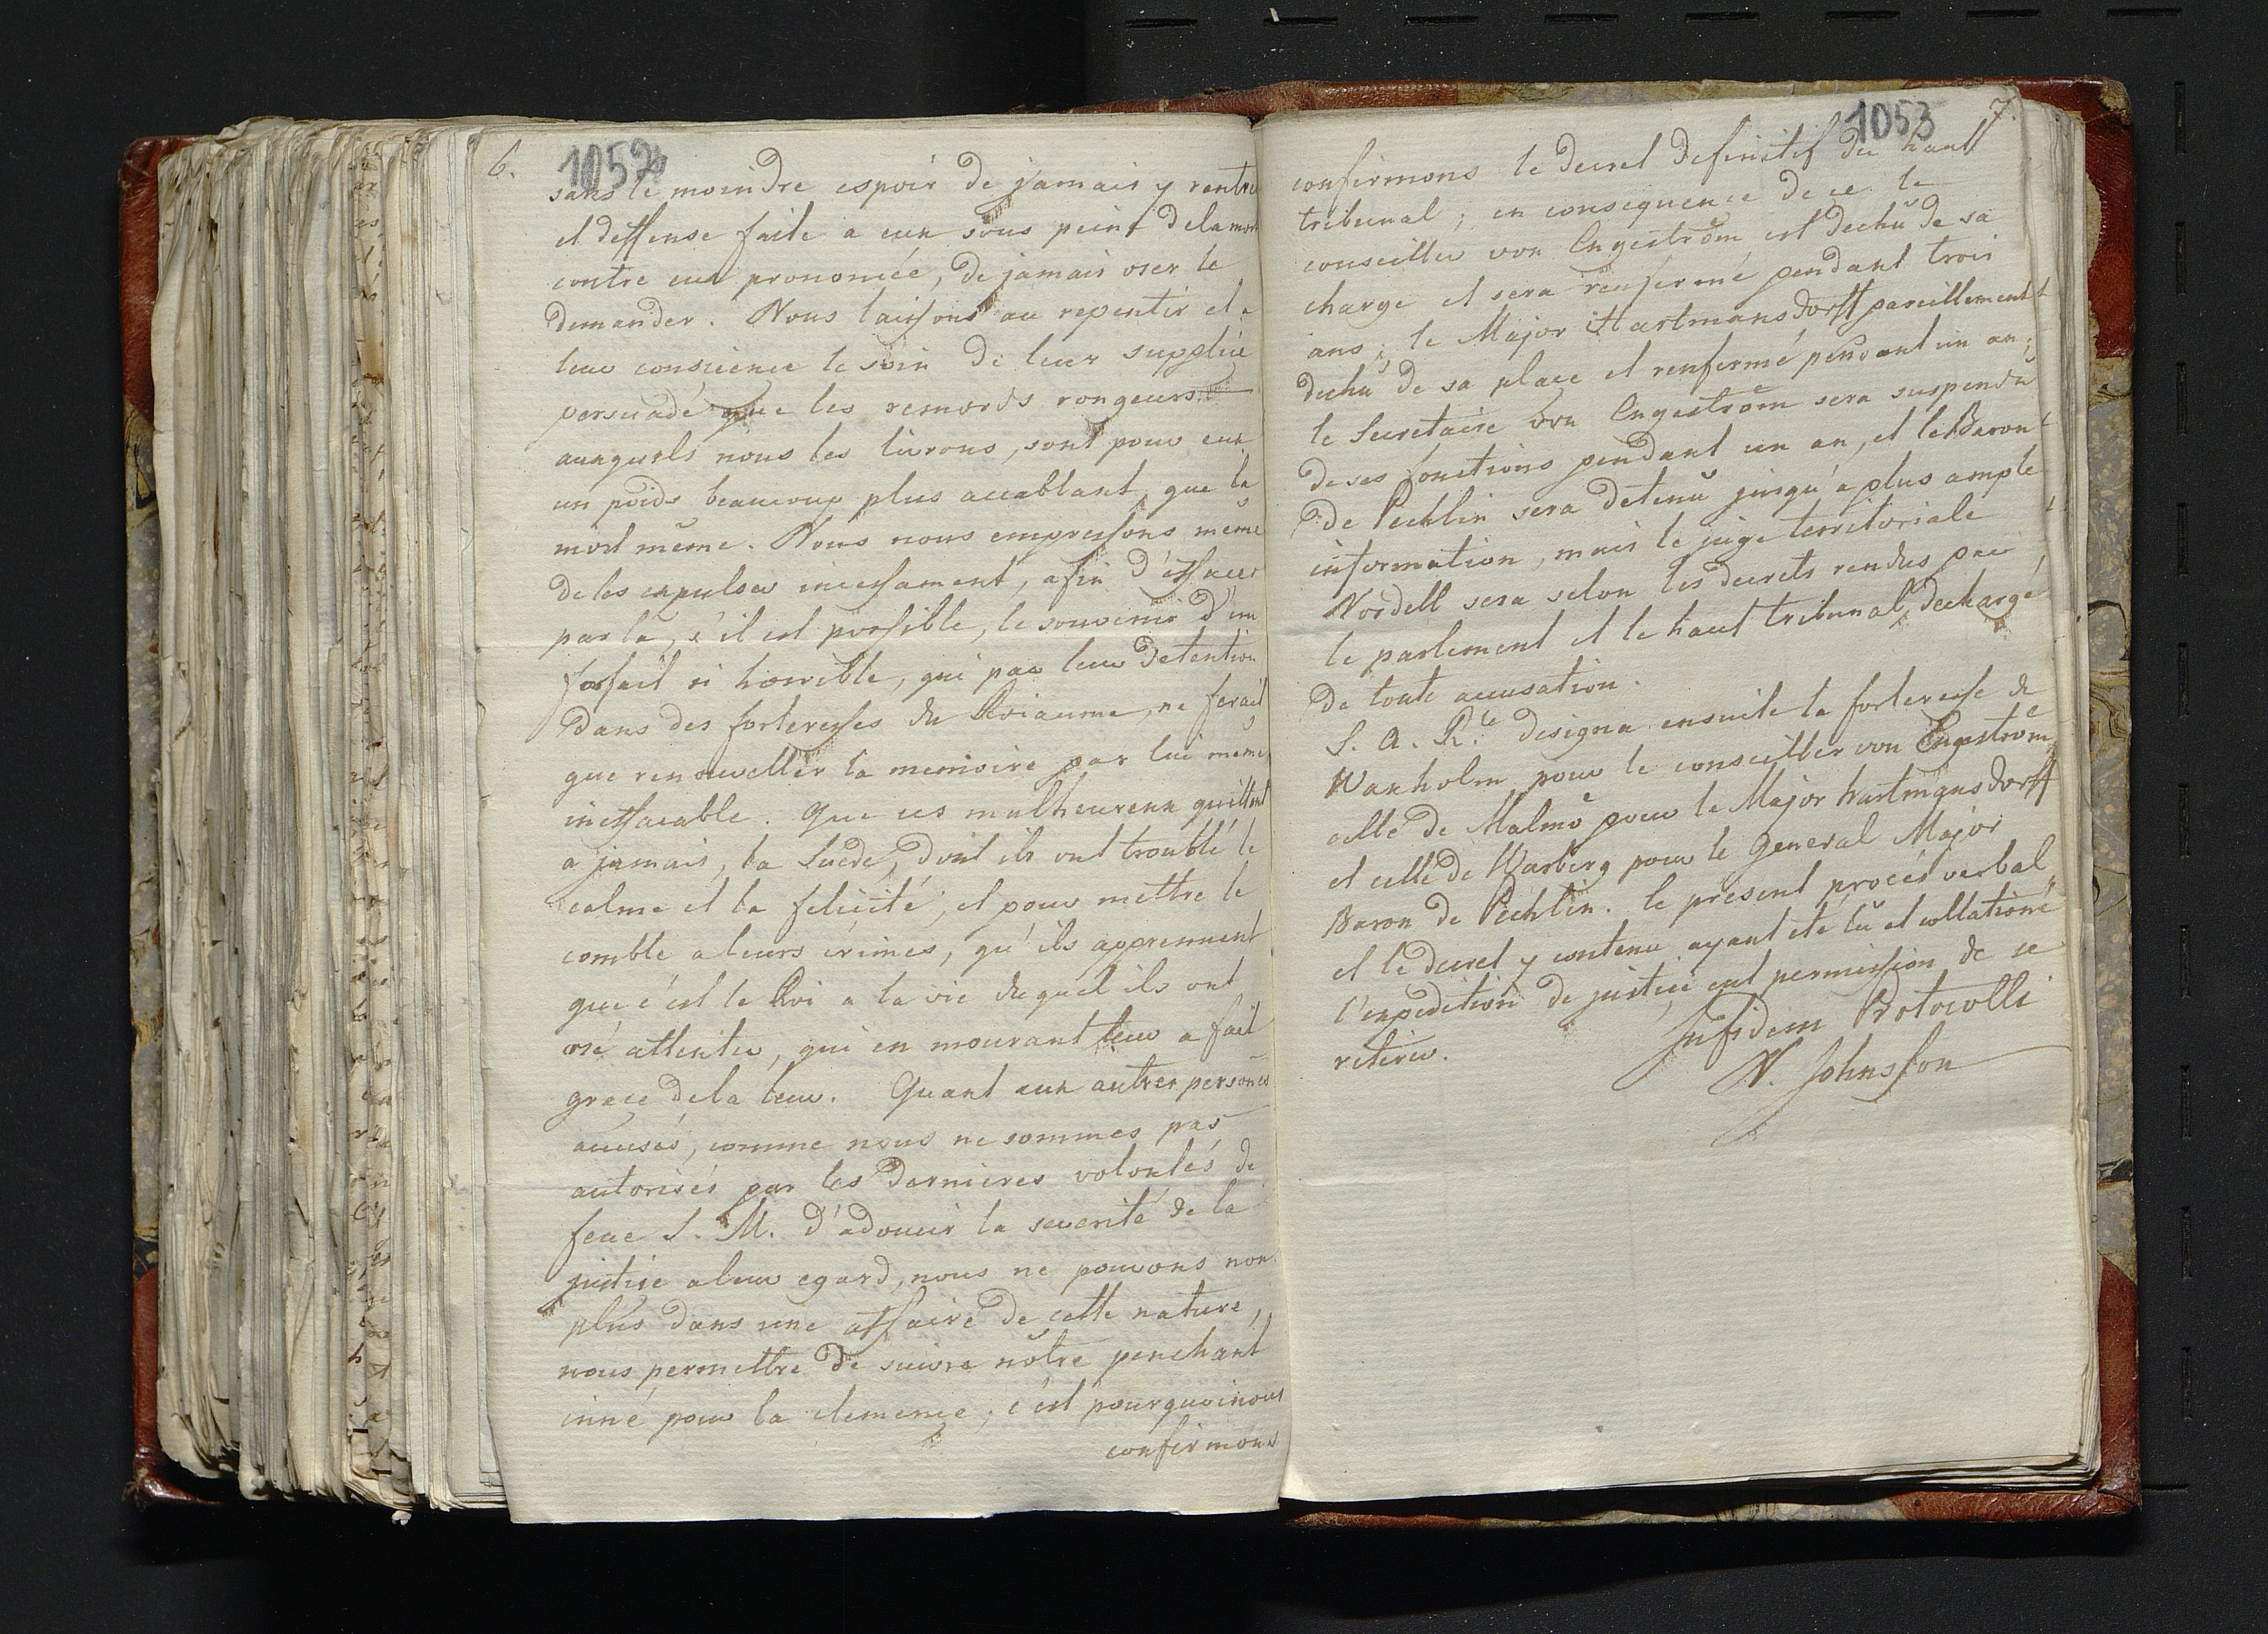 6.
1052
sans le moindre espoir de jamais y rentrer
et deffense faite a eux sous peine de la mort
contre eux prononcée, de jamais oser le
demander. Nous laissons au repentir et a
leur conscience le soin de leur supplice
persuadé que les remords rongeurs
auxquels nous les livrons, sont pour eux
un poids beaucoup plus accablant que la
mort même. Nous nous empressons même
de les expulser incessament, afin d'effacer
par là, s'il est possible, le souvenir d'un
forfait si horrible, qui par leur detention
dans des forteresses du Roiaume, ne ferait
que renouveller la memoire par lui meme
ineffacable. Que ces malheureux quittent
a jamais, la Suede, dont ils ont troublé le
calme et la felicité, et pour mettre le
comble a leurs crimes, qu'ils apprennent
que c'est le Roi a la vie duquel ils ont
osé attenter, qui en mourant leur a fait
grace de la leur. Quant aux autres persones
accusés, comme nous ne sommes pas
autorisés par les dernieres volontés de
feue S. M. d'adoucir la severité de la
justice a leur egard, nous ne pouvons non
plus dans une affaire de cette nature,
nous permettre de suivre nôtre penchant
inné pour la clemence; c'est pourquoi nous
confirmons
1053
7.
confirmons le decret definitif du haut
tribunal; en consequence de ce le
conseiller von Engeström est dechu de sa
charge et sera renfermé pendant trois
ans; le Major Hartmansdorff pareillement
dechu de sa place et renfermé pendant un an;
le Secretaire von Engeström sera suspendu
de ses fonctions pendant un an, et le Baron
de Pechlin sera detenu jusqu'à plus ample
information, mais le juge territoriale
Nordell sera selon les decrets rendus par
le parlement et le haut tribunal, dechargé
de toute accusation.
S. A. R.le designa ensuite la forteresse de
Waxholm pour le conseiller von Engeström,
celle de Malmö pour le Major Hartmansdorff
et celle de Warberg pour le General Major
Baron de Pechlin. le present procés verbal
et le decret y contenu ayant eté lû et collationé
l'expedition de justice eut permission de se
retirer.
In fidem Protocolli
N. Johnsson